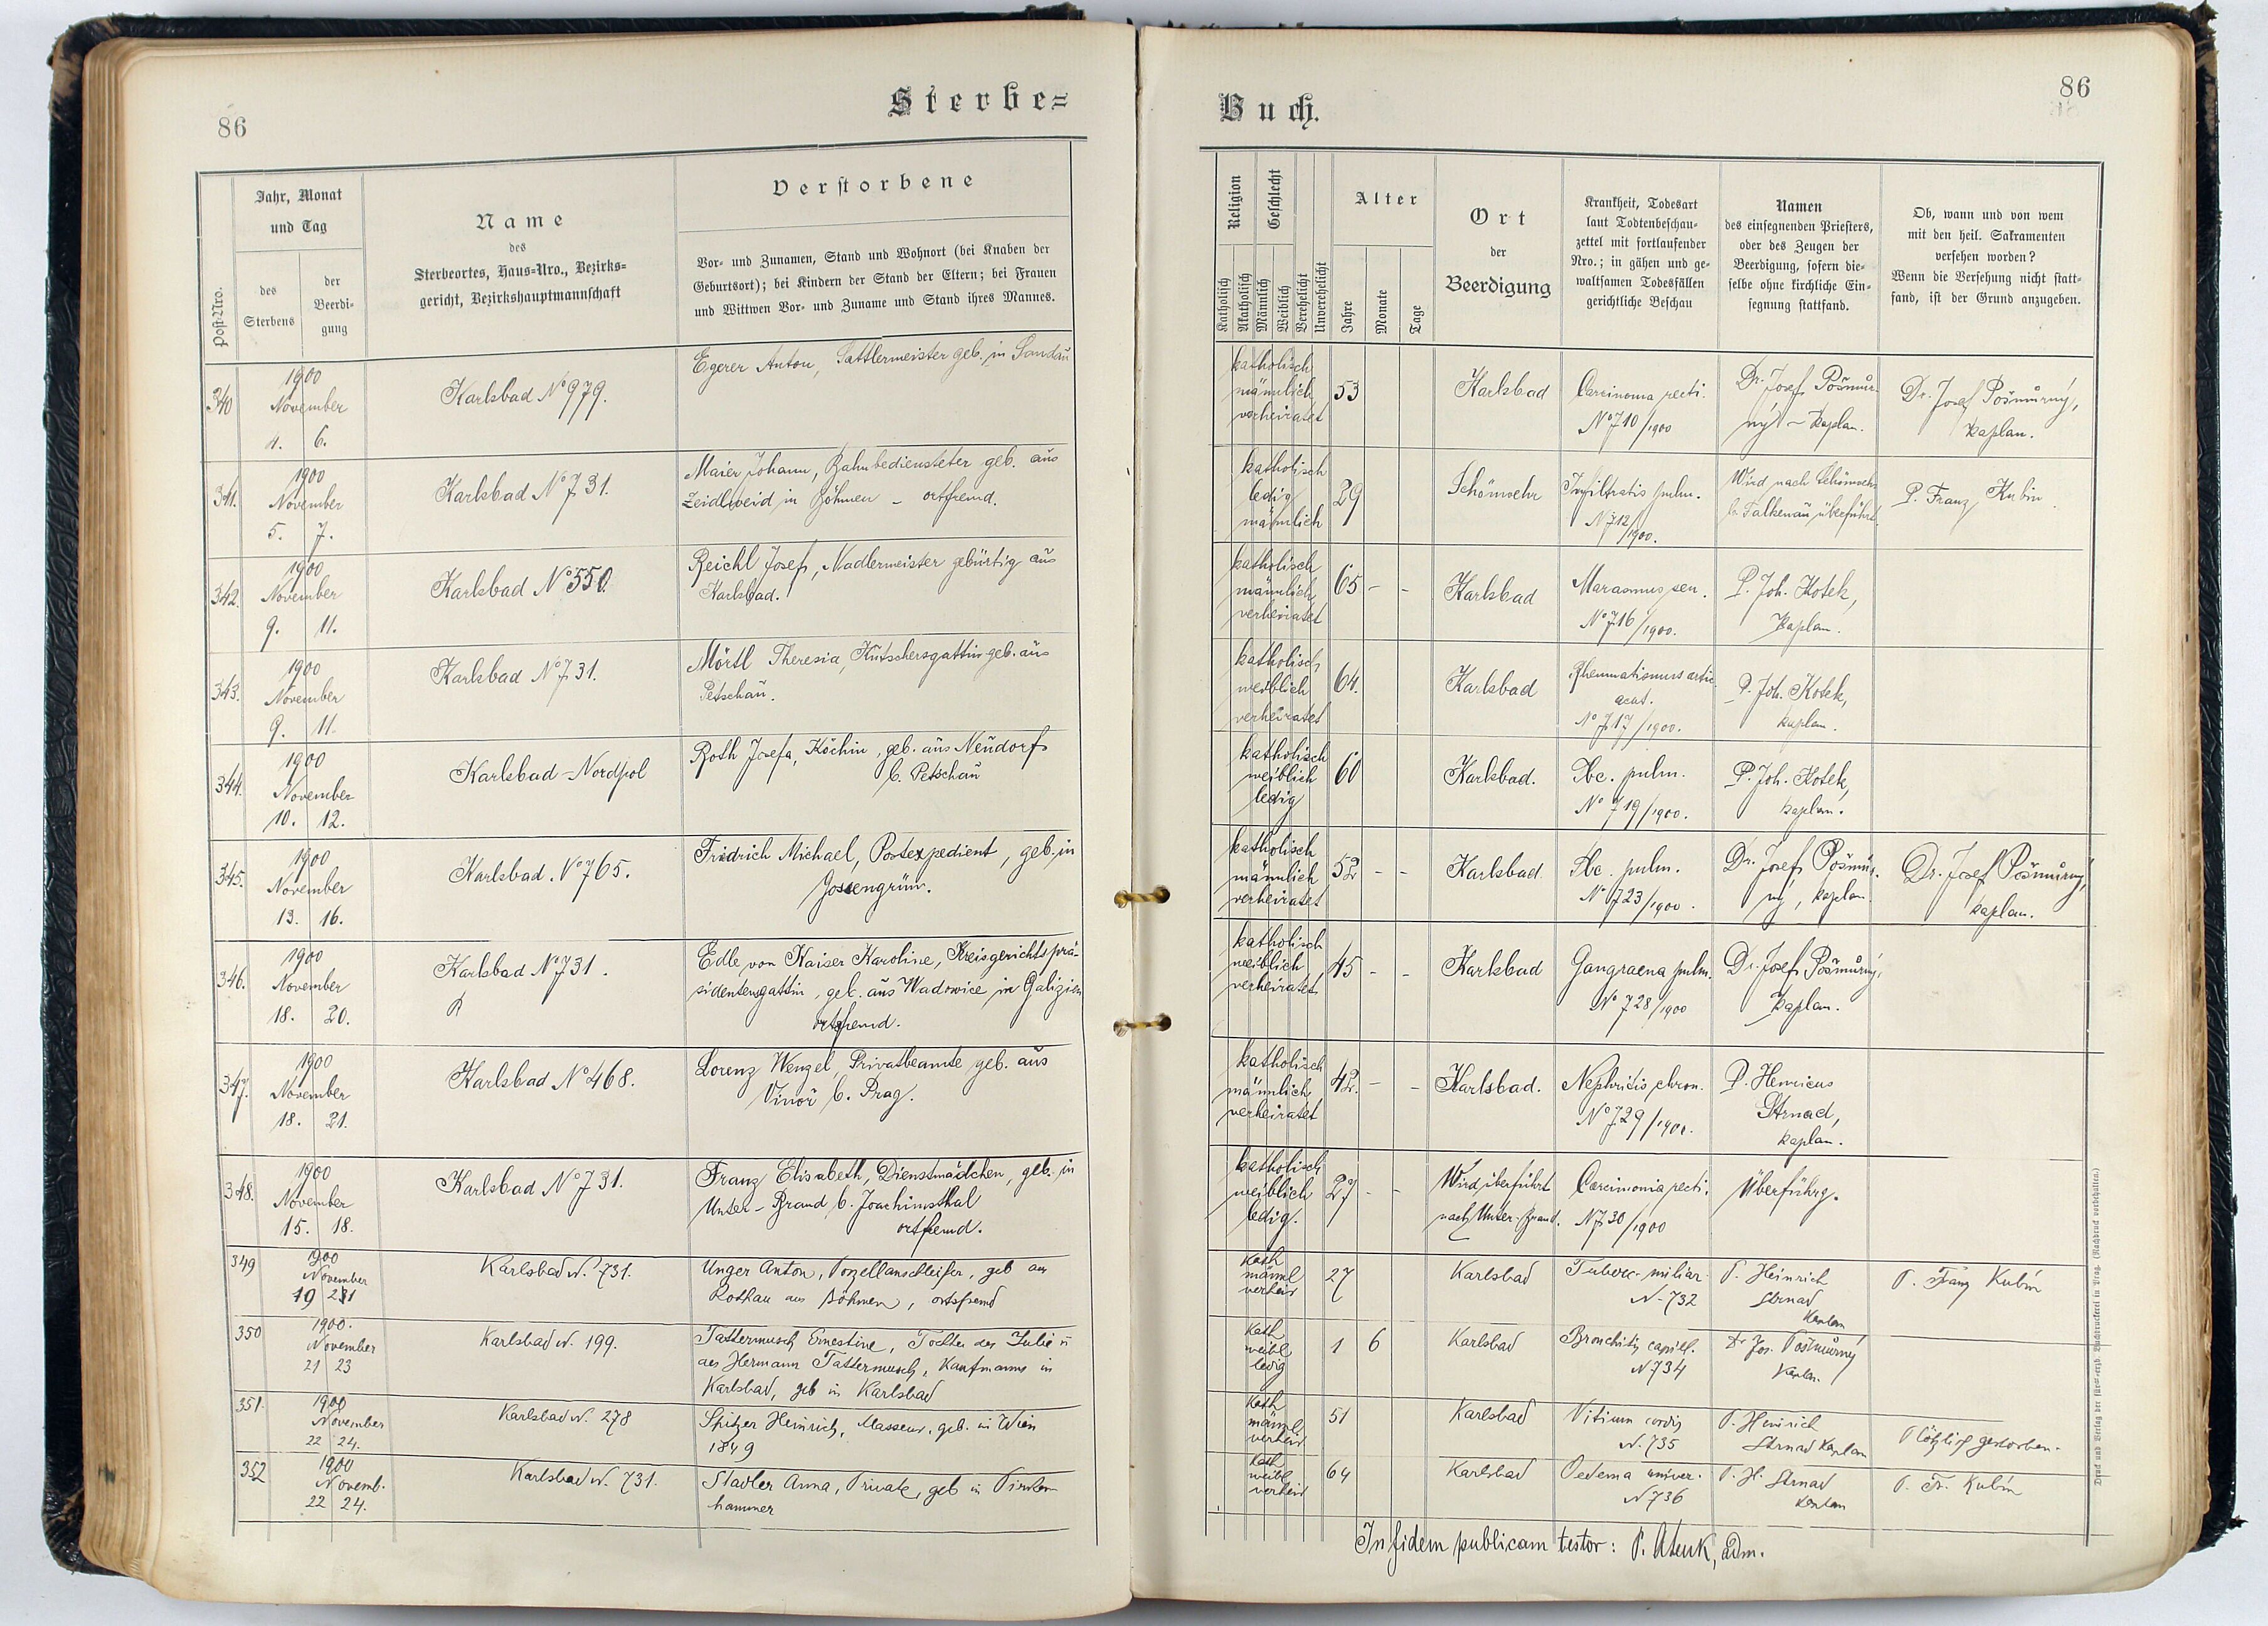 86
Sterbe=
Jahr, Monat
und Tag
Post-Nro.
des
Sterbens
der
Beerdi-
gung
Name
des
Sterbeortes, Haus=Nro., Bezirks=
gericht, Bezirkshauptmannschaft
Verstorbene
Vor- und Zunamen, Stand und Wohnort (bei Knaben der
Geburtsort); bei Kindern der Stand der Eltern; bei Frauen
und Wittwen Vor- und Zuname und Stand ihres Mannes.
340
1900
November
4. 6.
Karlsbad No 979.
Egerer Anton, Sattlermeister geb. in Sandau
341.
1900
November
5. 7.
Karlsbad No 731.
Maier Johann, Bahnbediensteter geb. aus
Zeidlweid in Böhmen – ortsfremd.
342.
1900
November
9. 11.
Karlsbad No 550.
Reichl Josef, Nadlermeister gebürtig aus
Karlsbad.
343.
1900
November
9. 11.
Karlsbad No 731.
Mörtl Theresia, Kutschersgattin geb. aus
Petschau.
344.
1900
November
10. 12.
Karlsbad – Nordpol
Roth Josefa, Köchin, geb. aus Neudorf
b. Petschau
345.
1900
November
13. 16.
Karlsbad. No 765.
Fridrich Michael, Postexpedient, geb. in
Gossengrün.
346.
1900
November
18. 20.
Karlsbad No 731.
Edle von Kaiser Karoline, Kreisgerichtsprä-
sidentensgattin, geb. aus Wadowice in Galizien
ortsfremd.
347.
1900
November
18. 21.
Karlsbad No 468.
Lorenz Wenzel, Privatbeamte geb. aus
Vinoř b. Prag.
348.
1900
November
15. 18.
Karlsbad No 731.
Franz Elisabeth, Dienstmädchen, geb. in
Unter-Brand b. Joachimsthal
ortfremd.
349
1900
November
19 21
Karlsbad N. 731.
Unger Anton, Porzellanschleifer, geb aus
Rothau aus Böhmen, ortsfremd
350
1900.
November
21 23
Karlsbad N. 199.
Tattermusch Ernestine, Tochter der Julie u
des Hermann Tattermusch, Kaufmanns in
Karlsbad, geb in Karlsbad
351
1900
November
22 24.
Karlsbad N. 278
Spitzer Heinrich, Masseur, geb. in Wien
1849
352
1900
Novemb.
22 24.
Karlsbad N. 731.
Stadler Anna, Private, geb in Pirken
hammer
86
Buch.
Religion
Geschlecht
Katholisch
Akatholisch
Männlich
Weiblich
Verehelicht
Unverehelicht
Alter
Jahre
Monate
Tage
Ort
der
Beerdigung
Krankheit, Todesart
laut Todtenbeschau-
zettel mit fortlaufender
Nro.; in gähen und ge-
waltsamen Todesfällen
gerichtliche Beschau
Namen
des einsegnenden Priesters,
oder des Zeugen der
Beerdigung, sofern die-
selbe ohne kirchliche Ein-
segnung stattfand.
Ob, wann und von wem
mit den heil. Sakramenten
versehen worden?
Wenn die Versehung nicht statt-
fand, ist der Grund anzugeben.
katholisch
männlich
verheiratet
53
Karlsbad
Carcinoma recti.
No 710/1900
Dr. Josef Pošmůr-
ný – Kaplan.
Dr. Josef Pošmůrný,
kaplan.
katholisch
ledig
männlich
29
Schönwehr
Infiltratis pulm.
N 712/1900.
Wird nach Schönwehr
b. Falkenau überführt
P. Franz Kubin
katholisch
männlich
verheiratet
65 – –
Karlsbad
Marasmus sen.
No 716/1900.
P. Joh. Kotek,
Kaplan.
katholisch
weiblich
verheiratet
64.
Karlsbad
Rheumatismus artic.
acut.
No 717/1900.
P. Joh. Kotek,
kaplan.
katholisch
weiblich
ledig
60
Karlsbad.
Tbc. pulm.
No 719/1900.
P. Joh. Kotek,
kaplan.
katholisch
männlich
verheiratet
52 – –
Karlsbad.
Tbc. pulm.
No 723/1900.
Dr. Josef Pošmůr-
ný, kaplan.
Dr. Josef Pošmůrný,
kaplan.
katholisch
weiblich
verheiratet
45 – –
Karlsbad
Gangraena pulm.
No 728/1900
Dr. Josef Pošmůrný,
Kaplan.
katholisch
männlich
verheiratet
42. – –
Karlsbad.
Nephritis chron.
No 729/1900.
P. Henricus
Strnad,
kaplan.
katholisch
weiblich
ledig.
27 – –
Wird überführt
nach Unter-Brand.
Carcimonia recti.
N 730/1900
Überführg.
Kath
männl
verheir
27
Karlsbad
Tuberc. miliar.
N. 732
P. Heinrich
Strnad
Kaplan
P. Franz Kubín
Kath
weibl
ledig
1 6
Karlsbad
Bronchitis capill.
N 734
Dr Jos. Pošmůrný
Kaplan.
Kath
männl
verheir
51
Karlsbad
Vitium cordis
N. 735
P. Heinrich
Strnad Kaplan
Plötzlich gestorben.
Kath
weibl
verheir
64
Karlsbad
Oedema univer.
N 736
P. H. Strnad
Kaplan
P. Fr. Kubín
In fidem publicam testor: P. , adm.
Druck und Verlag der fürst-erzb. Buchdruckerei in Prag. (Nachdruck vorbehalten.)